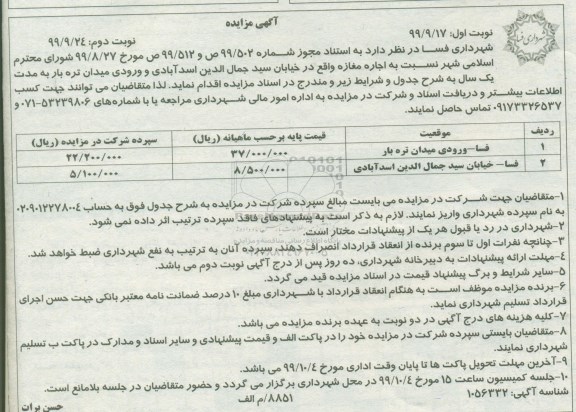 آگهی مزایده
نوبت اول: ۹۹/۹/۱۷
نوبت دوم: ۹۹/۹/۲۴
شهرداری فسا
شهرداری فسا در نظر دارد به استناد مجوز شماره ۹۹/۵۰۲ ص و ۹۹/۵۱۲ ص مورخ ۹۹/۸/۲۷ شورای محترم
اسلامی شهر نسبت به اجاره مغازه واقع در خیابان سید جمال الدین اسدآبادی و ورودی میدان تره بار به مدت
یک سال به شرح جدول و شرایط زیر و مندرج در اسناد مزایده اقدام نماید. لذا متقاضیان می توانند جهت کسب
اطلاعات بیشتر و دریافت اسناد و شرکت در مزایده به اداره امور مالی شهرداری مراجعه یا با شماره‌های ۵۳۲۳۹۸۰۶-۰۷۱ و
۰۹۱۷۳۳۲۶۵۳۷ تماس حاصل نمایند.
ردیف موقعیت قیمت پایه برحسب ماهیانه (ریال) سپرده شرکت در مزایده (ریال)
۱ فسا-ورودی میدان تره بار ۳۷/۰۰۰/۰۰۰ ۲۲/۲۰۰/۰۰۰
۲ فسا- خیابان سید جمال الدین اسدآبادی ۸/۵۰۰/۰۰۰ ۵/۱۰۰/۰۰۰
۱-متقاضیان جهت شرکت در مزایده می بایست مبالغ سپرده شرکت در مزایده به شرح جدول فوق به حساب ۰۲۰۹۰۱۲۲۷۸۰۰۴
به نام سپرده شهرداری واریز نمایند. لازم به ذکر است به پیشنهادهای فاقد سپرده ترتیب اثر داده نمی شود.
۲-شهرداری در رد یا قبول هر یک از پیشنهادات مختار است.
۳-چنانچه نفرات اول تا سوم برنده از انعقاد قرارداد انصراف دهند، سپرده آنان به ترتیب به نفع شهرداری ضبط خواهد شد.
۴-مهلت ارائه پیشنهادات به دبیرخانه شهرداری، ده روز پس از درج آگهی نوبت دوم می باشد.
۵-سایر شرایط و برگ پیشنهاد قیمت در اسناد مزایده قید می گردد.
۶-برنده مزایده موظف است به هنگام انعقاد قرارداد با شهرداری مبلغ ۱۰ درصد ضمانت نامه معتبر بانکی جهت حسن اجرای
قرارداد تسلیم شهرداری نماید.
۷-کلیه هزینه های درج آگهی در دو نوبت به عهده برنده مزایده می باشد.
۸-متقاضیان بایستی سپرده شرکت در مزایده خود را در پاکت الف و قیمت پیشنهادی و سایر اسناد و مدارک در پاکت ب تسلیم
شهرداری نمایند.
۹-آخرین مهلت تحویل پاکت ها تا پایان وقت اداری مورخ ۹۹/۱۰/۴ می باشد.
۱۰-جلسه کمیسیون ساعت ۱۵ مورخ ۹۹/۱۰/۴ در محل شهرداری برگزار می گردد و حضور متقاضیان در جلسه بلامانع است.
شناسه آگهی: ۱۰۵۶۳۳۲
۸۸۵۱/م الف
حسن برات